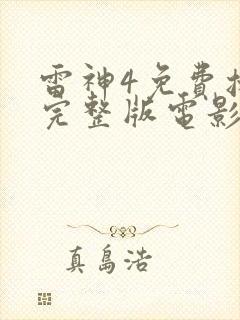 雷神4免費
完整版電影
真島浩